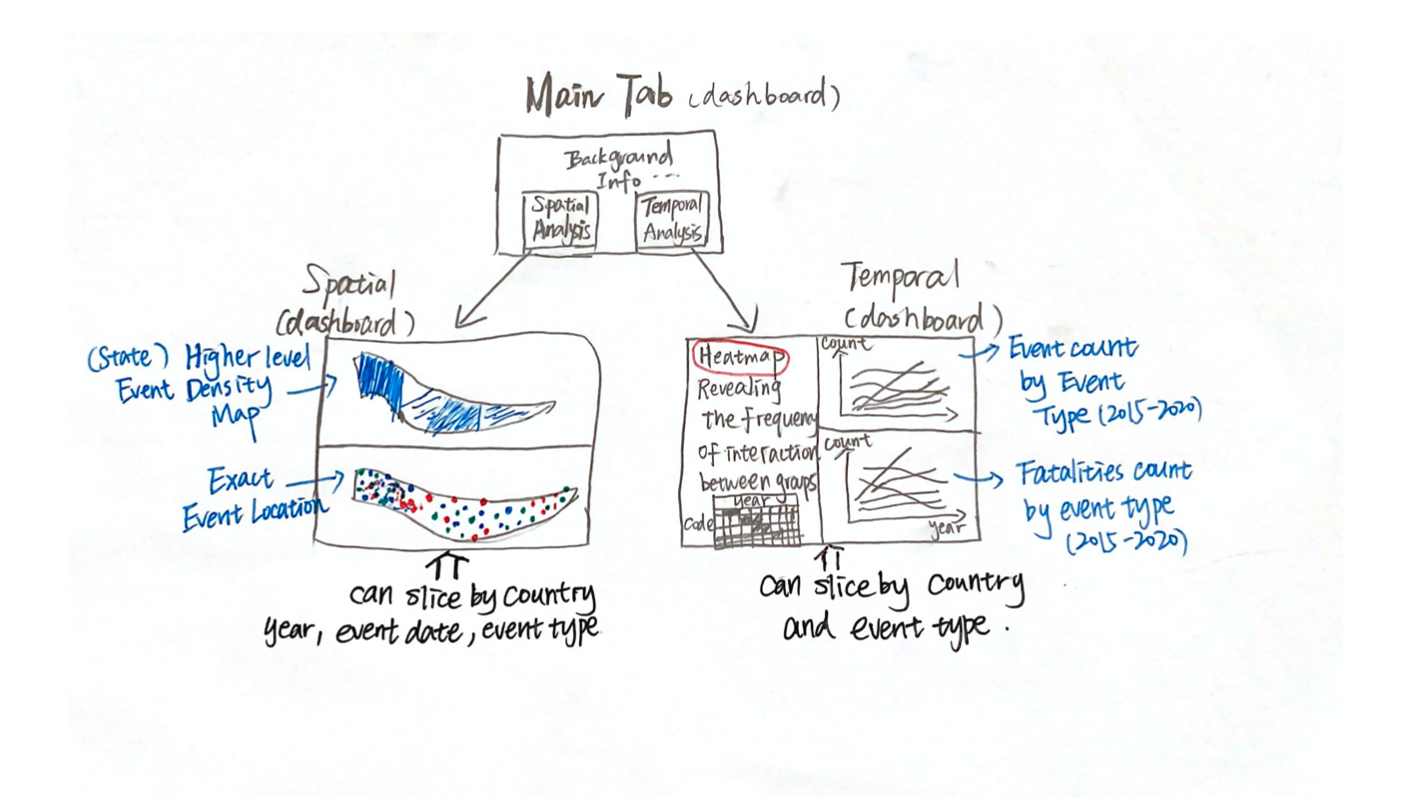 Main Tab (dashboard)
Background
Info ...
Spatial
Analysis
Temporal
Analysis
Spatial
(dashboard)
(State) Higher level
Event Density
Map
Exact
Event Location
can slice by country
year, event date, event type
Temporal
(dashboard)
Heatmap
Revealing
the frequency
of interaction
between groups
year
Code
count
count
year
Event count
by Event
Type (2015-2020)
Fatalities count
by event type
(2015-2020)
can slice by country
and event type.